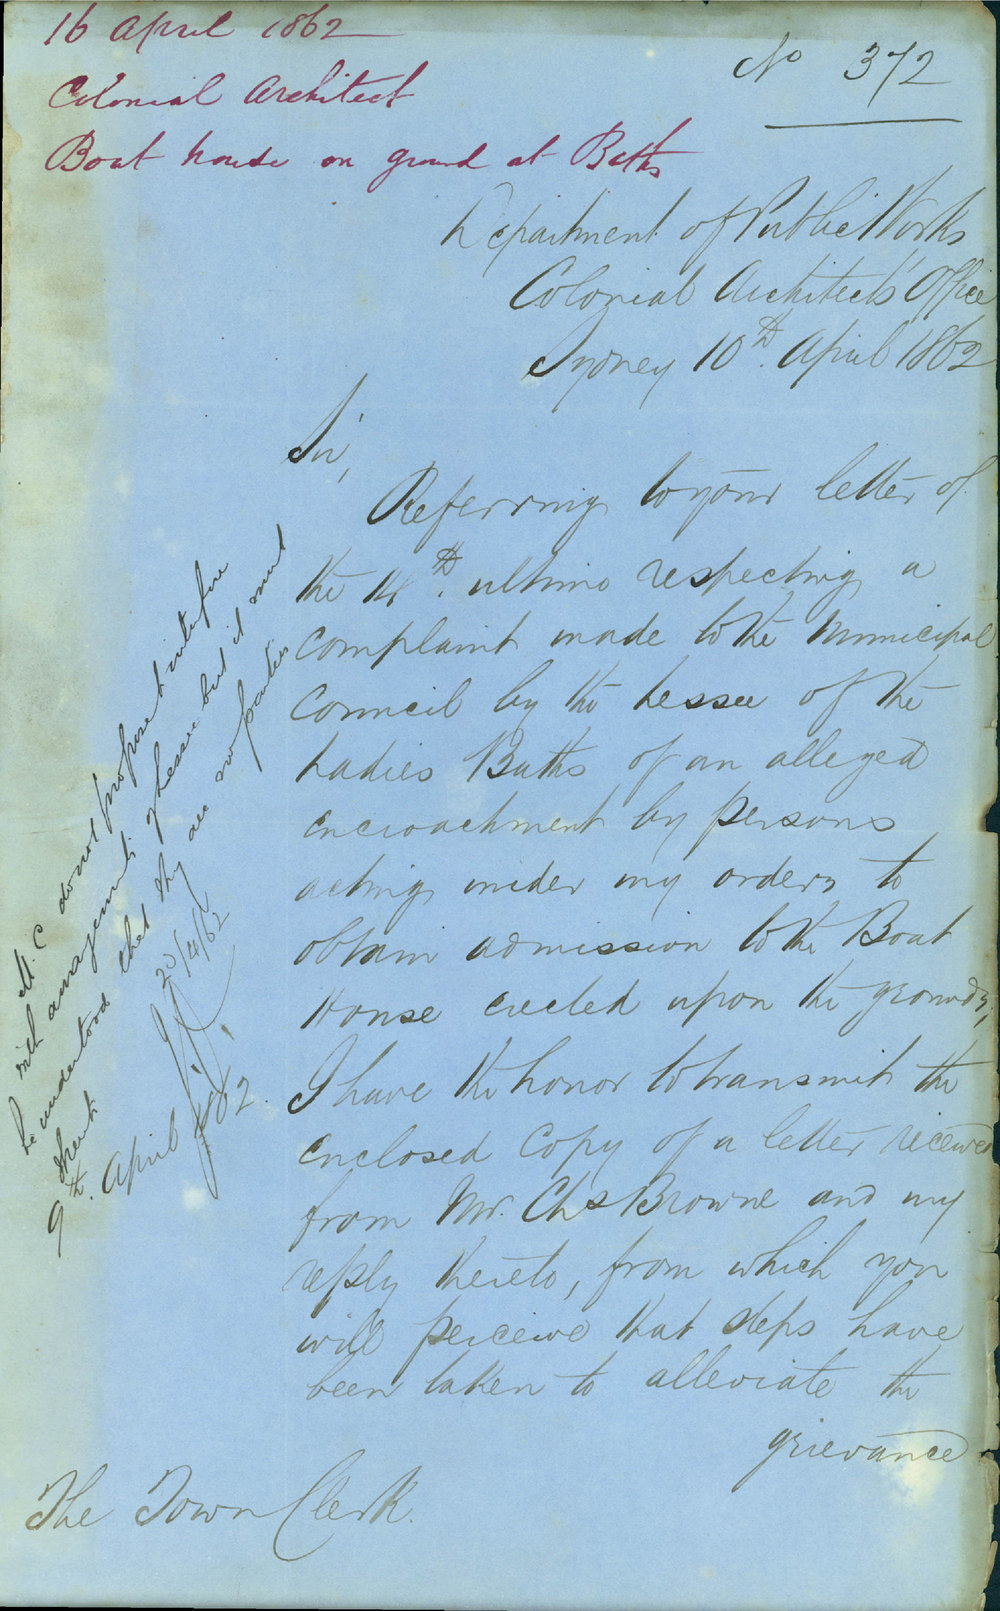 16 April 1862
Colonial Architect
Boat house on ground at Baths
No 372
Department of Public Works
Colonial Architects' Office
Sydney 10th. April 1862
Sir,
Referring to your letter of
the 14th. ultimo respecting a
complaint made to the Municipal
Council by the Lessee of the
Ladies Baths of an alleged
encroachment by persons
acting under my orders to
obtain admission to the Boat
House erected upon the grounds,
I have the honor to transmit the
enclosed Copy of a letter received
from Mr. Chs Browne and my
reply thereto, from which you
will perceive that steps have
been taken to alleviate the
grievance
The Town Clerk.
M.C do not propose to interfere
with arrangements of lessee but it must
be understood that they are no parties
thereto
23/4/62
9th. April 1862.